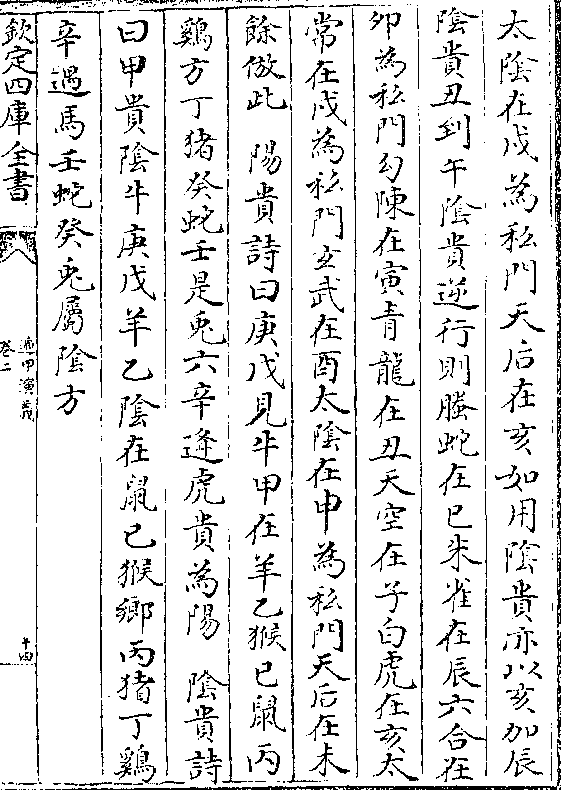 太陰在戌為私門天后在亥如用陰貴亦以亥加辰
陰貴丑到午陰貴逆行則螣蛇在巳朱雀在辰六合在
卯為私門勾陳在寅青龍在丑天空在子白虎在亥太
常在戌為私門玄武在酉太陰在申為私門天后在未
餘倣此　陽貴詩曰庚戊見牛甲在羊乙猴巳鼠丙
鷄方丁猪癸蛇壬是兎六辛逢虎貴為陽　陰貴詩
曰甲貴陰牛庚戊羊乙陰在鼠巳猴鄉丙猪丁鷄
辛遇馬壬蛇癸兎屬陰方
欽定四庫全書
遁甲演義
卷二
十四